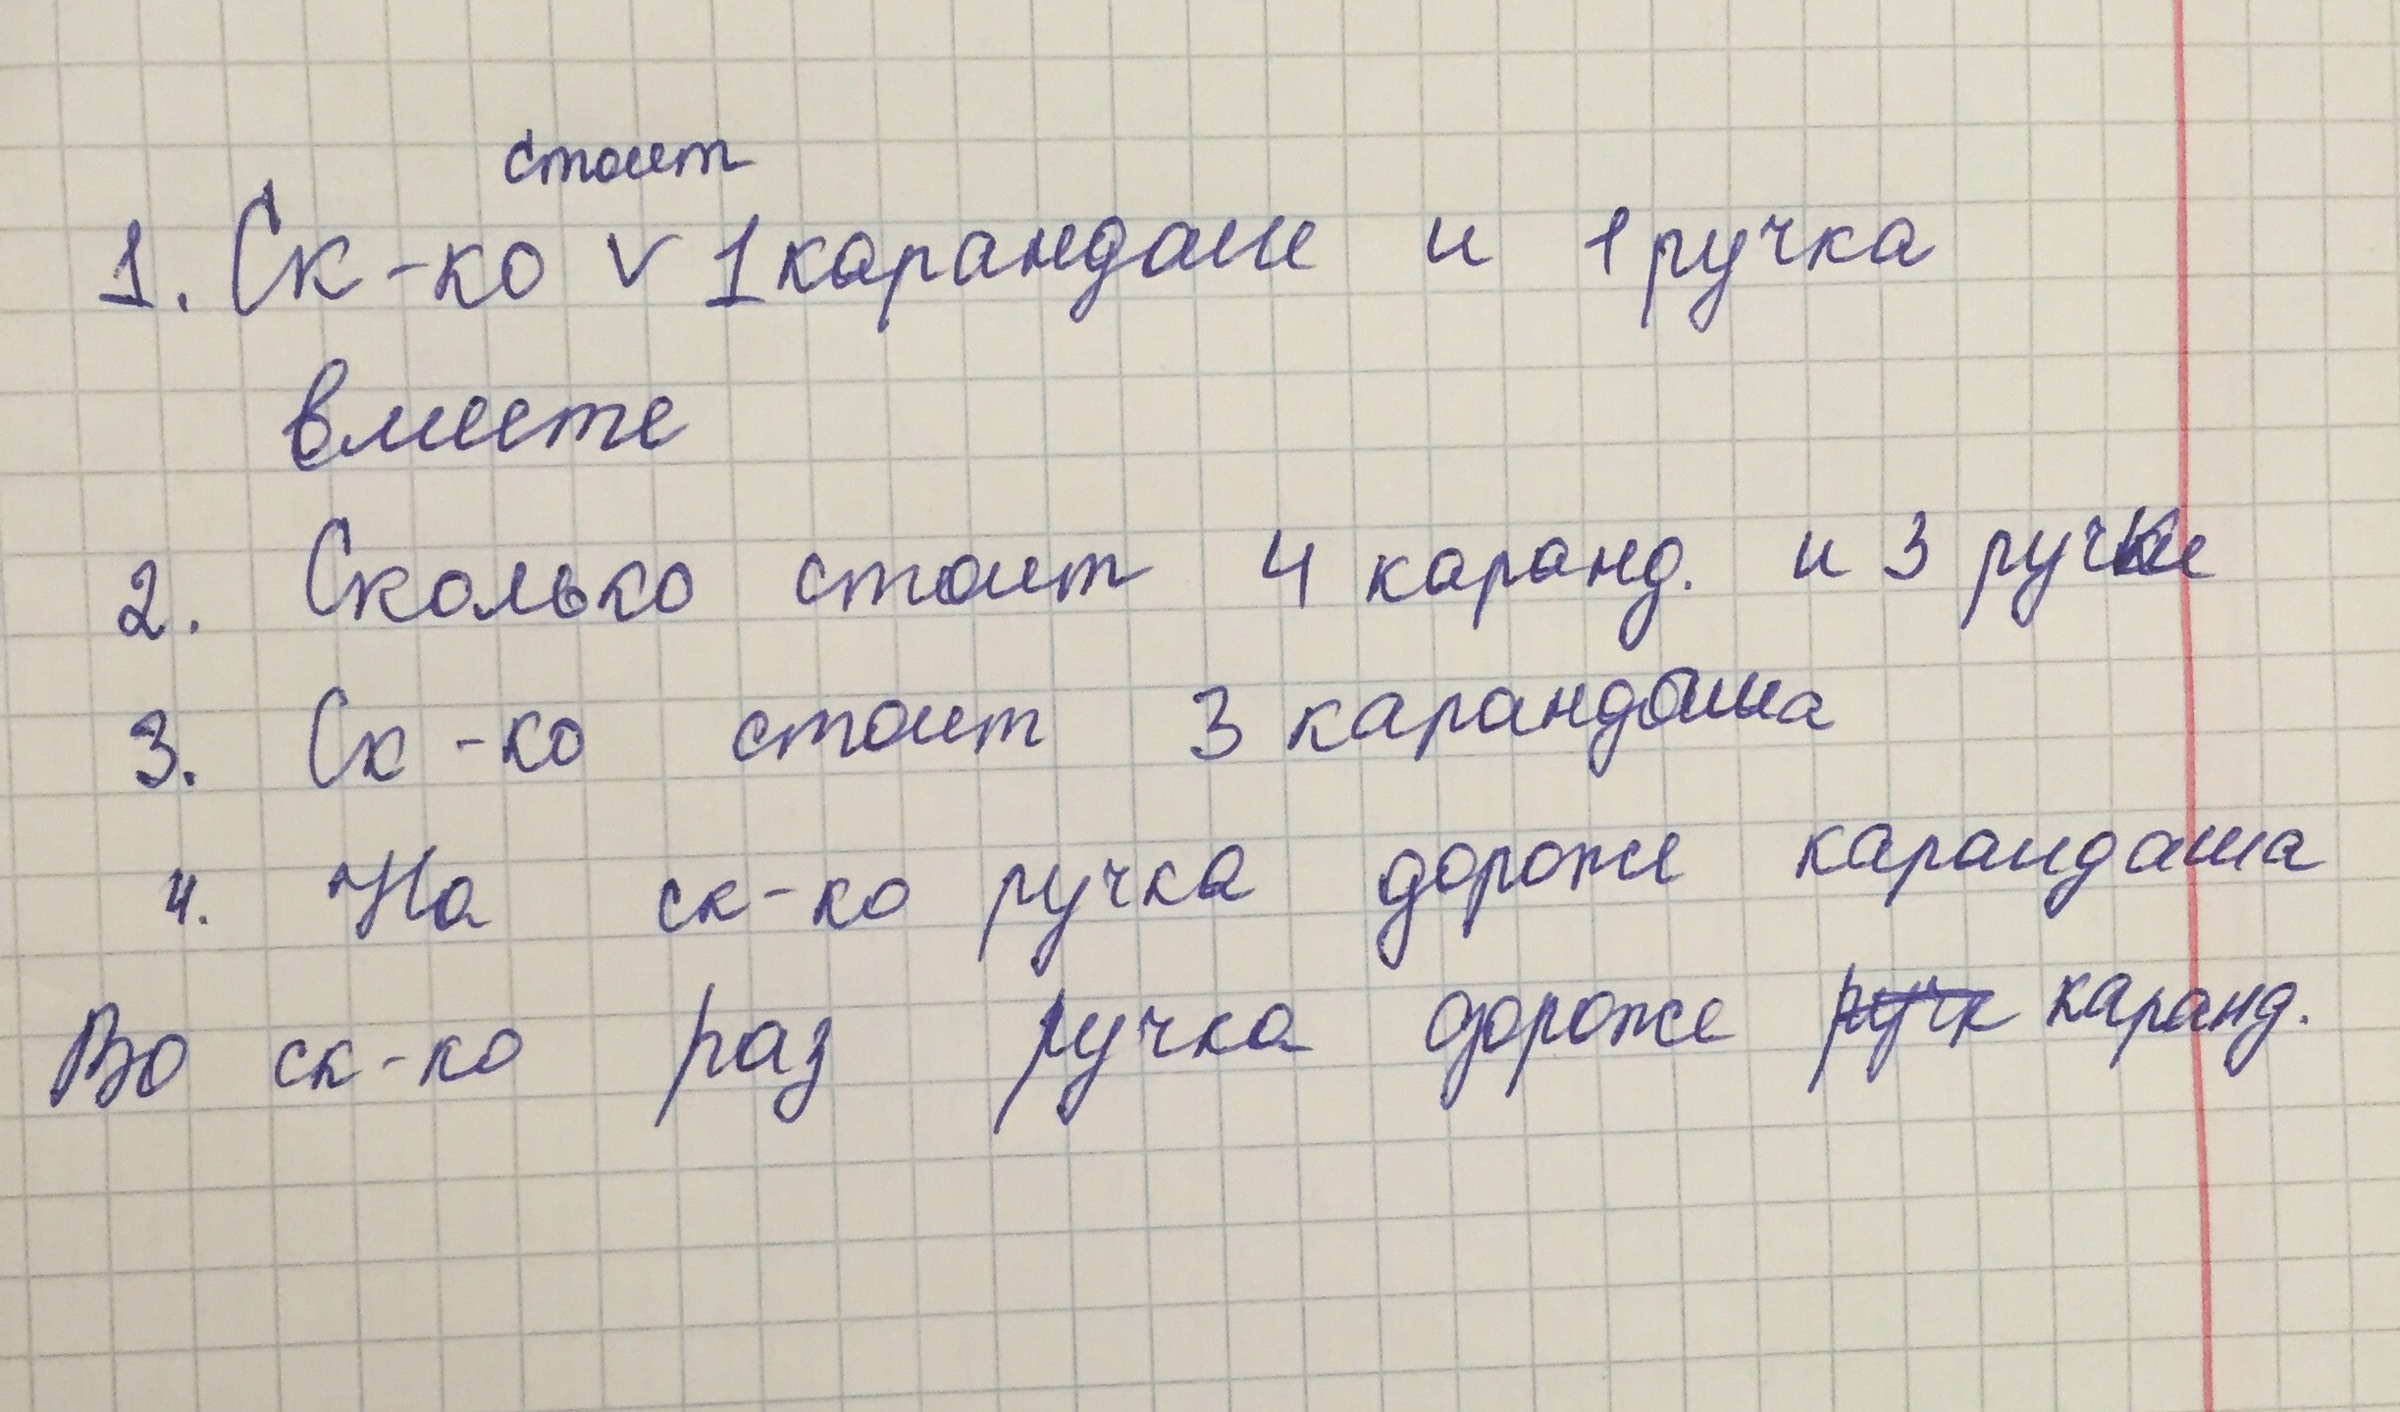 стоит
1. Ск-ко V 1 карандаш и 1 ручка
вместе
2. Сколько стоит 4 каранд. и 3 ручки
3. Ск-ко стоит 3 карандаша
4. На ск-ко ручка дороже карандаша
Во ск-ко раз ручка дороже ручк каранд.